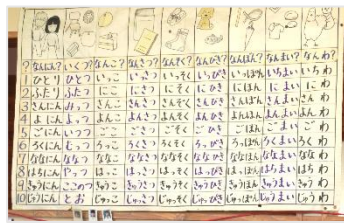 ? なんにん? いくつ? なんこ? なんさつ? なんぞく? なんびき? なんぼん? なんまい? なんわ
1 ひとり ひとつ いっこ いっさつ いっそく いっぴき いっぽん いちまい いちわ
2 ふたり ふたつ にこ にさつ にそく にひき にほん にまい にわ
3 さんにん みっつ さんこ さんさつ さんぞく さんびき さんぼん さんまい さんわ
4 よにん よっつ よんこ よんさつ よんそく よんひき よんほん よんまい よんわ
5 ごにん いつつ ごこ ごさつ ごそく ごひき ごほん ごまい ごわ
6 ろくにん むっつ ろっこ ろくさつ ろくそく ろっぴき ろっぽん ろくまい ろくわ
7 ななにん ななつ ななこ ななさつ ななそく ななひき ななほん ななまい ななわ
8 はちにん やっつ はっこ はっさつ はっそく はっぴき はっぽん はちまい はちわ
9 きゅうにん ここのつ きゅうこ きゅうさつ きゅうそく きゅうひき きゅうほん きゅうまい きゅうわ
10 じゅうにん とお じゅっこ じゅっさつ じゅっそく じゅっぴき じゅっぽん じゅうまい じゅうわ